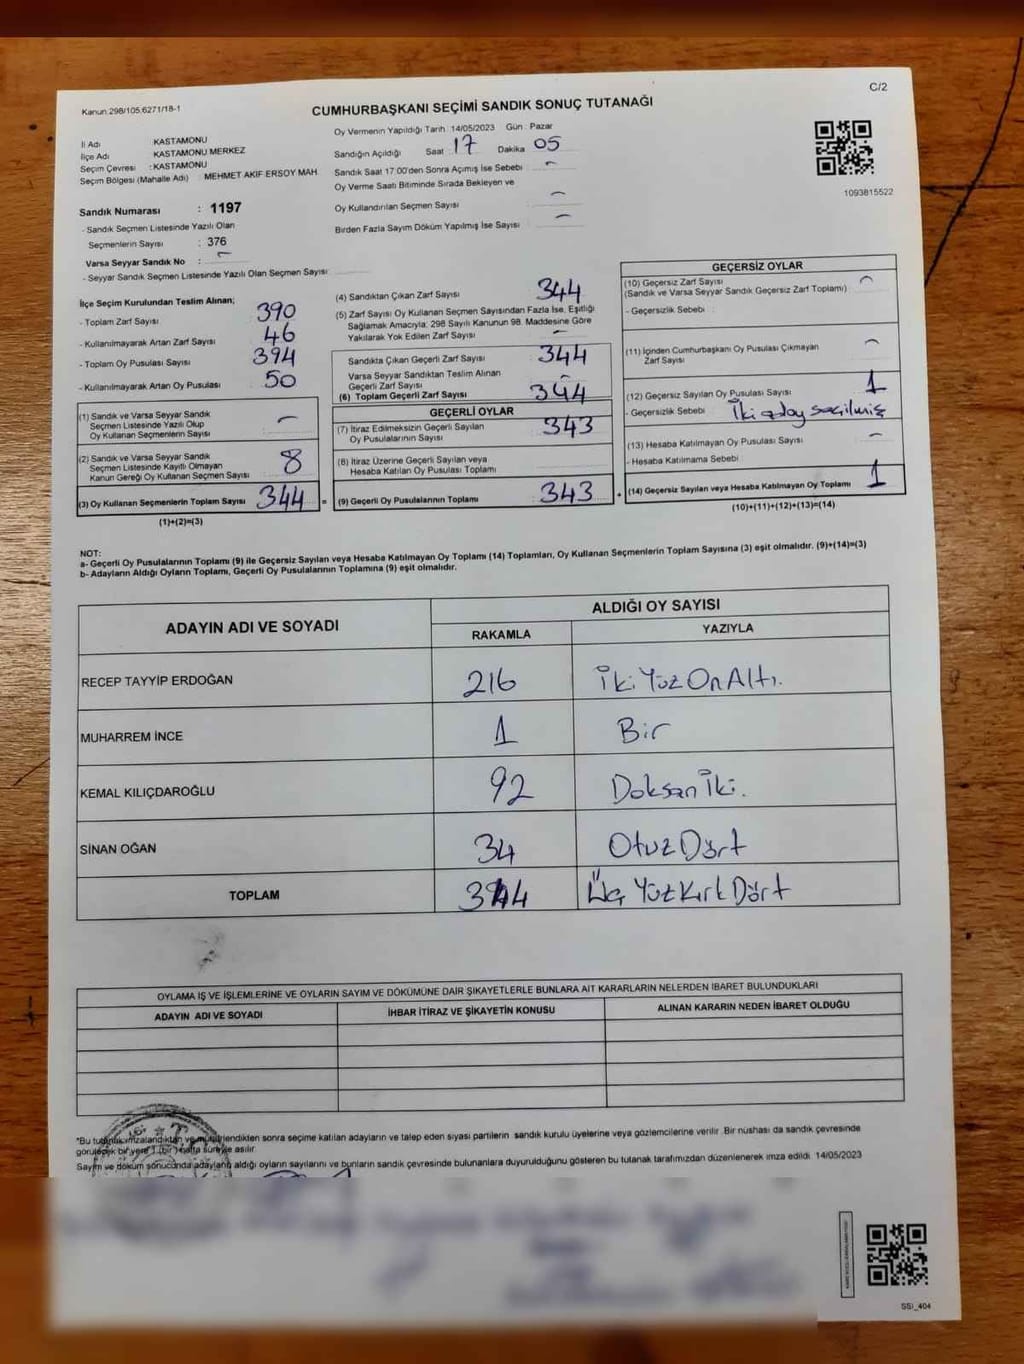 C/2
Kanun 298/105,6271/18-1
CUMHURBAŞKANI SEÇİMİ SANDIK SONUÇ TUTANAĞI
İl Adı KASTAMONU
İlçe Adı KASTAMONU MERKEZ
Seçim Çevresi : KASTAMONU
Seçim Bölgesi (Mahalle Adı) : MEHMET AKİF ERSOY MAH.
Sandık Numarası : 1197
- Sandık Seçmen Listesinde Yazılı Olan
Seçmenlerin Sayısı : 376
Varsa Seyyar Sandık No :
- Seyyar Sandık Seçmen Listesinde Yazılı Olan Seçmen Sayısı
Oy Vermenin Yapıldığı Tarih 14/05/2023 Gün : Pazar
Sandığın Açıldığı Saat 17 Dakika 05
Sandık Saat 17.00'den Sonra Açımış İse Sebebi
Oy Verme Saati Bitiminde Sırada Bekleyen ve
Oy Kullandırılan Seçmen Sayısı
Birden Fazla Sayım Döküm Yapılmış İse Sayısı
1093815522
İlçe Seçim Kurulundan Teslim Alınan;
- Toplam Zarf Sayısı 390
- Kullanılmayarak Artan Zarf Sayısı 46
- Toplam Oy Pusulası Sayısı 394
- Kullanılmayarak Artan Oy Pusulası 50
(1) Sandık ve Varsa Seyyar Sandık
Seçmen Listesinde Yazılı Olup
Oy Kullanan Seçmenlerin Sayısı
(2) Sandık ve Varsa Seyyar Sandık
Seçmen Listesinde Kayıtlı Olmayan
Kanun Gereği Oy Kullanan Seçmen Sayısı 8
(3) Oy Kullanan Seçmenlerin Toplam Sayısı 344 =
(1)+(2)=(3)
(4) Sandıktan Çıkan Zarf Sayısı 344
(5) Zarf Sayısı Oy Kullanan Seçmen Sayısından Fazla İse, Eşitliği
Sağlamak Amacıyla, 298 Sayılı Kanunun 98. Maddesine Göre
Yakılarak Yok Edilen Zarf Sayısı
Sandıkta Çıkan Geçerli Zarf Sayısı 344
Varsa Seyyar Sandıktan Teslim Alınan
Geçerli Zarf Sayısı
(6) Toplam Geçerli Zarf Sayısı 344
GEÇERLİ OYLAR
(7) İtiraz Edilmeksizin Geçerli Sayılan
Oy Pusulalarının Sayısı 343
(8) İtiraz Üzerine Geçerli Sayılan veya
Hesaba Katılan Oy Pusulası Toplamı
(9) Geçerli Oy Pusulalarının Toplamı 343 +
GEÇERSİZ OYLAR
(10) Geçersiz Zarf Sayısı
(Sandık ve Varsa Seyyar Sandık Geçersiz Zarf Toplamı)
- Geçersizlik Sebebi :
(11) İçinden Cumhurbaşkanı Oy Pusulası Çıkmayan
Zarf Sayısı
(12) Geçersiz Sayılan Oy Pusulası Sayısı 1
- Geçersizlik Sebebi İki aday seçilmiş
(13) Hesaba Katılmayan Oy Pusulası Sayısı
- Hesaba Katılmama Sebebi
(14) Geçersiz Sayılan veya Hesaba Katılmayan Oy Toplamı 1
(10)+(11)+(12)+(13)=(14)
NOT:
a- Geçerli Oy Pusulalarının Toplamı (9) ile Geçersiz Sayılan veya Hesaba Katılmayan Oy Toplamı (14) Toplamları, Oy Kullanan Seçmenlerin Toplam Sayısına (3) eşit olmalıdır. (9)+(14)=(3)
b- Adayların Aldığı Oyların Toplamı, Geçerli Oy Pusulalarının Toplamına (9) eşit olmalıdır.
ADAYIN ADI VE SOYADI ALDIĞI OY SAYISI
RAKAMLA YAZIYLA
RECEP TAYYİP ERDOĞAN 216 İki Yüz On Altı.
MUHARREM İNCE 1 Bir
KEMAL KILIÇDAROĞLU 92 Doksan İki.
SİNAN OĞAN 34 Otuz Dört
TOPLAM 344 Üç Yüz Kırk Dört
OYLAMA İŞ VE İŞLEMLERİNE VE OYLARIN SAYIM VE DÖKÜMÜNE DAİR ŞİKAYETLERLE BUNLARA AİT KARARLARIN NELERDEN İBARET BULUNDUKLARI
ADAYIN ADI VE SOYADI İHBAR İTİRAZ VE ŞİKAYETİN KONUSU ALINAN KARARIN NEDEN İBARET OLDUĞU
*Bu tutanak imzalandıktan ve mühürlendikten sonra seçime katılan adayların ve talep eden siyasi partilerin sandık kurulu üyelerine veya gözlemcilerine verilir. Bir nüshası da sandık çevresinde
görülecek bir yere 1 (bir) hafta süreyle asılır.
Sayım ve döküm sonucunda adayların aldığı oyların sayılarını ve bunların sandık çevresinde bulunanlara duyurulduğunu gösteren bu tutanak tarafımızdan düzenlenerek imza edildi. 14/05/2023
SSİ_404